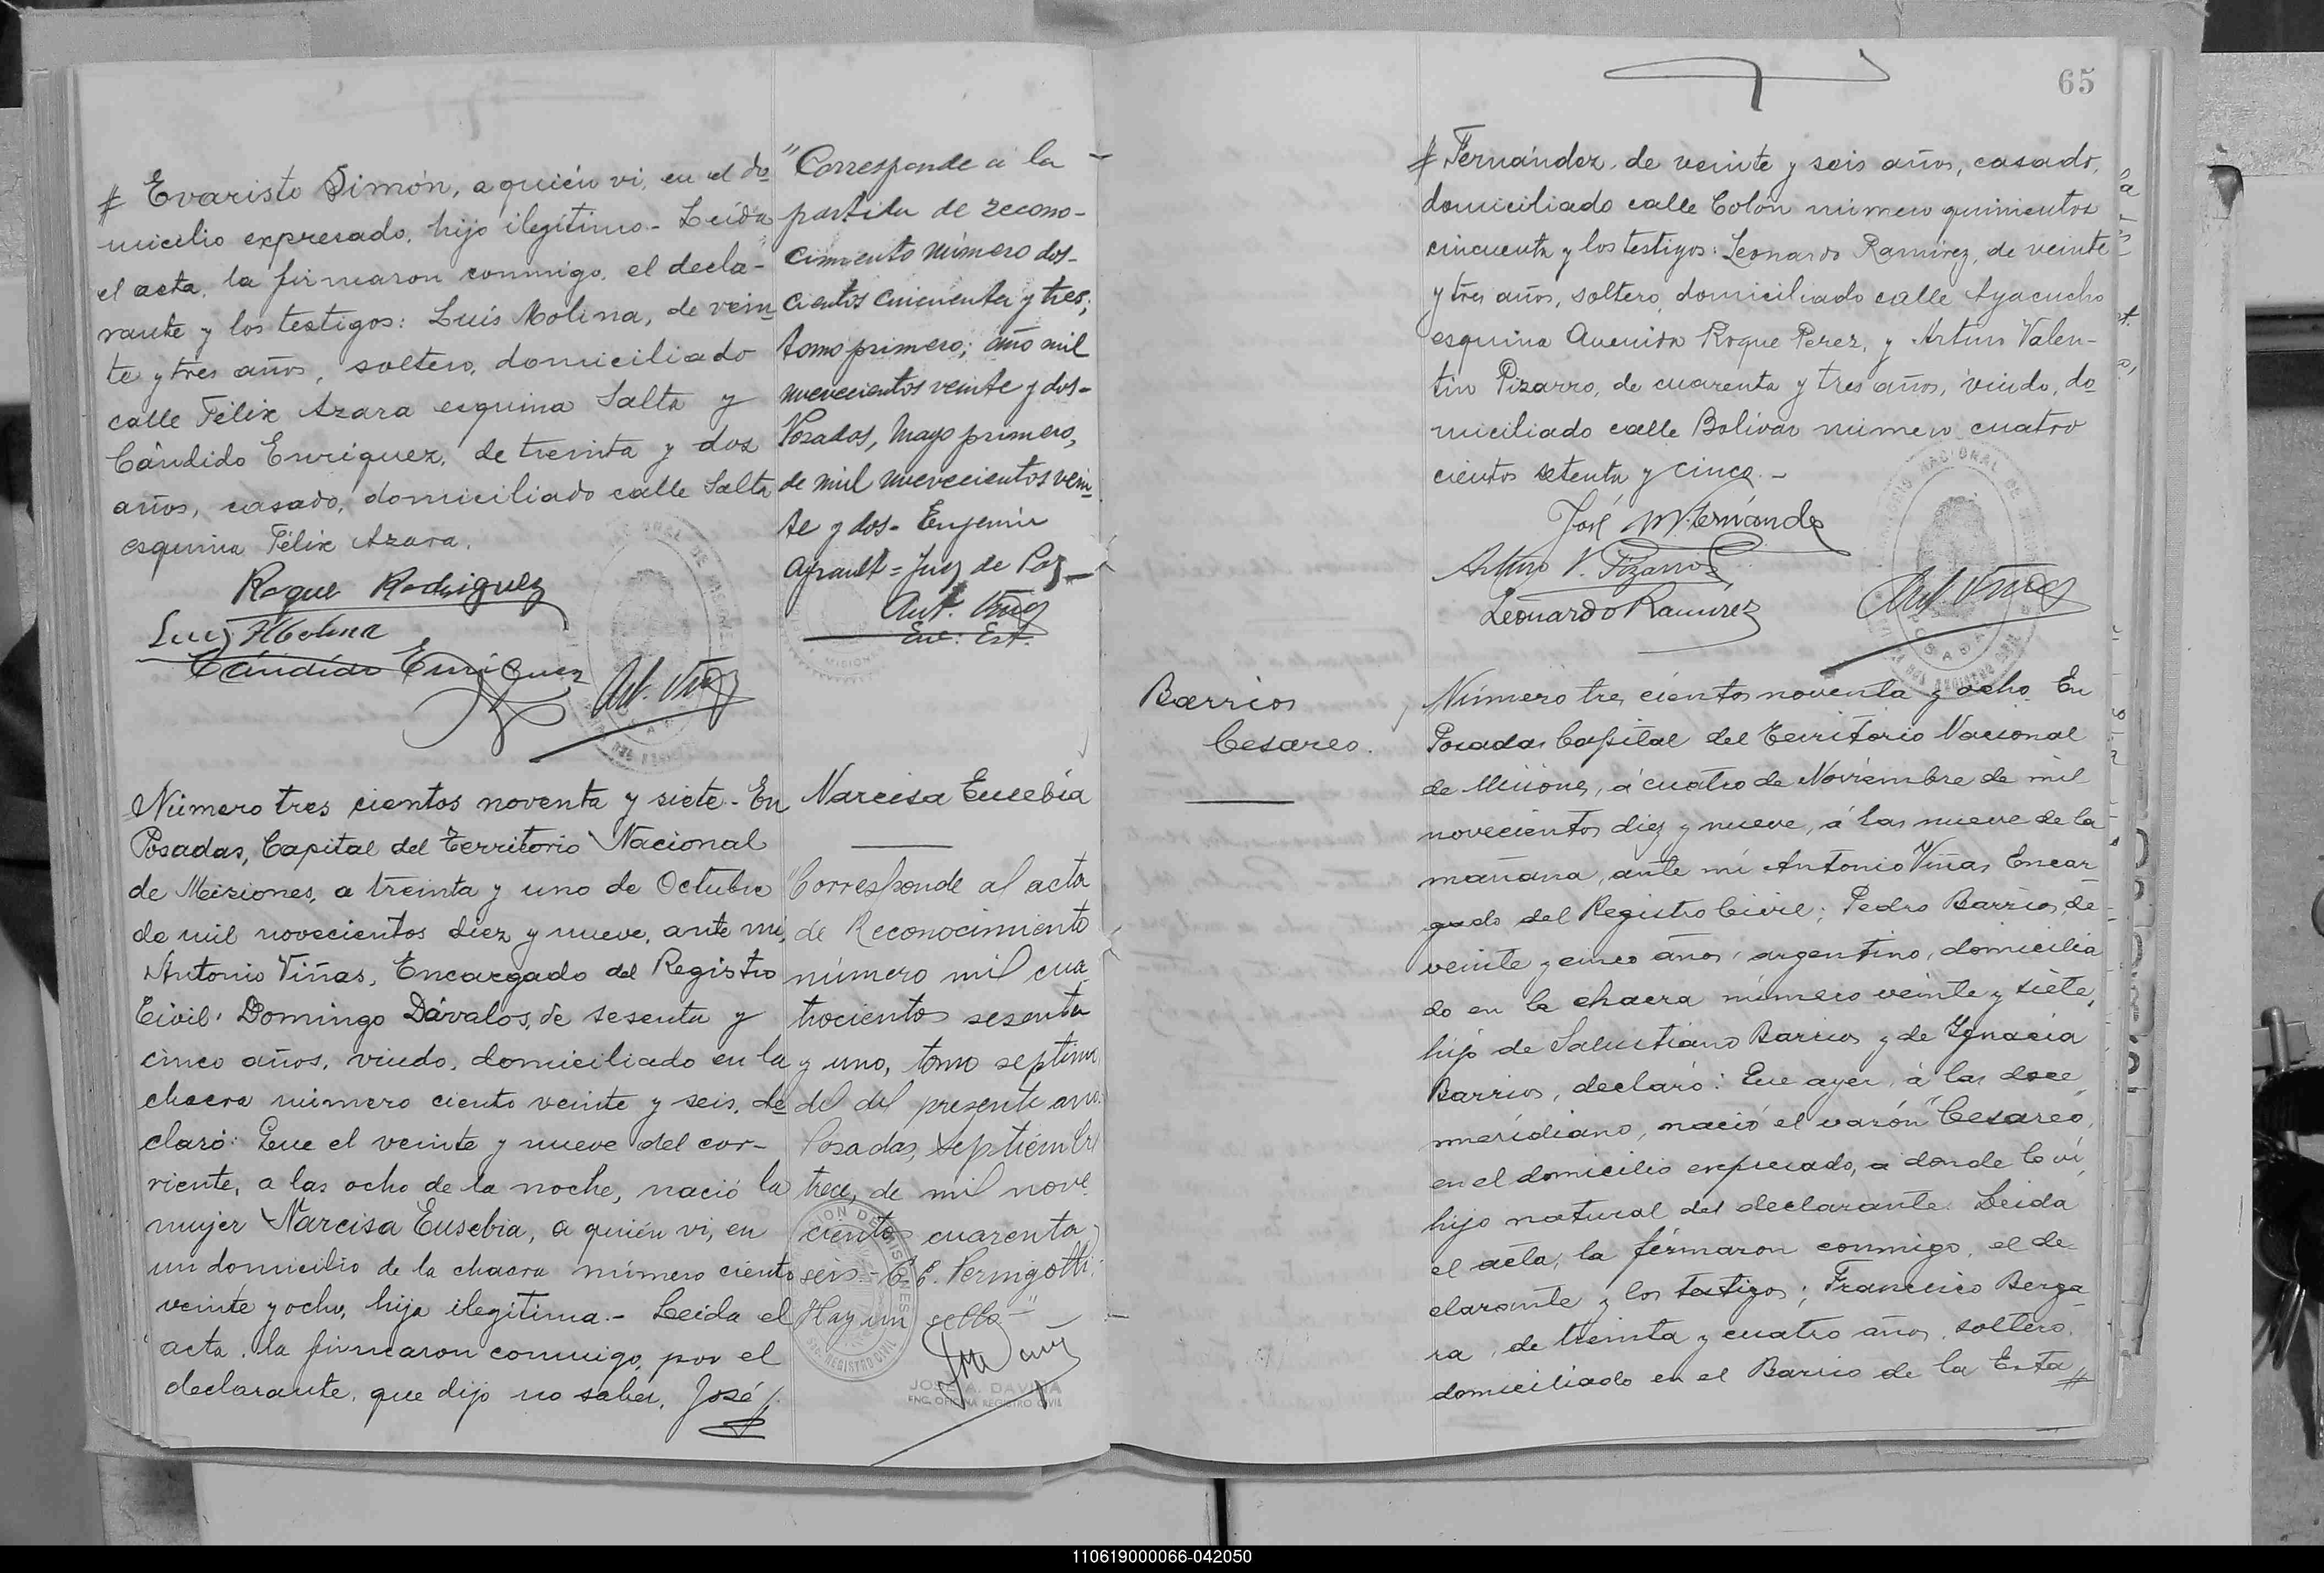 # Evaristo Simón, a quién vi, en el do
micilio expresado, hijo ilegítimo.- Leída
el acta, la firmaron conmigo, el decla-
rante y los testigos: Luís Molina, de vein
te y tres años, soltero, domiciliado
calle Félix Azara esquina Salta y
Cándido Enriquez, de treinta y dos
años, casado, domiciliado calle Salta
esquina Félix Azara.
Roque Rodriguez
Luis Molina
Cándido Enriquez
Ant. Viñas
"Corresponde a la
partida de recono-
cimiento número dos-
cientos cincuenta y tres,
tomo primero; año mil
nuevecientos veinte y dos-
Posadas, Mayo primero,
de mil nuevecientos vein-
te y dos- Eugenio
Ayrault = Juez de Paz
Ant. Viñas
Enc: Est.
Número tres cientos noventa y siete.- En
Posadas, Capital del Territorio Nacional
de Misiones, a treinta y uno de Octubre
de mil novecientos diez y nueve, ante mi,
Antonio Viñas, Encargado del Registro
Civil: Domingo Dávalos, de sesenta y
cinco años, viudo, domiciliado en la
chacra número ciento veinte y seis, de
claró: Que el veinte y nueve del cor-
riente, a las ocho de la noche, nació la
mujer Narcisa Eusebia, a quién vi, en
un domicilio de la chacra número ciento
veinte y ocho, hija ilegítima.- Leida el
acta, la firmaron conmigo, por el
declarante, que dijo no saber, José #
Narcisa Eusebia
"Corresponde al acta
de Reconocimiento
número mil cua
trocientos sesenta
y uno, tomo septimo
del del presente año.
Posadas, septiembre
trece, de mil nove
cientos cuarenta y
seis - C. E. Pernigotti.
Hay un sello-"
JOSE A. DAVIÑA
ENC. OFICINA REGISTRO CIVIL
65
# Fernández, de veinte y seis años, casado,
domiciliado calle Colón número quinientos
cincuenta y los testigos: Leonardo Ramirez, de veinte
y tres años, soltero, domiciliado calle Ayacucho
esquina Avenida Roque Perez, y Arturo Valen-
tin Pizarro, de cuarenta y tres años, viudo, do
miciliado calle Bolivar número cuatro
cientos setenta y cinco.-
José M. Fernández
Arturo V. Pizarro
Leonardo Ramirez
Ant. Viñas
Barrios
Cesareo.
Número tres cientos noventa y ocho. En
Posadas Capital del Territorio Nacional
de Misiones, á cuatro de Noviembre de mil
novecientos diez y nueve, á las nueve de la
mañana, ante mí Antonio Viñas Encar
gado del Registro Civil; Pedro Barrios, de
veinte y cinco años, argentino, domicilia
do en la chacra número veinte y siete,
hijo de Salustiano Barrios y de Ignacia
Barrios, declaró: Que ayer, á las doce
meridiano, nació el varón "Cesareo",
en el domicilio expresado, a donde lo ví,
hijo natural del declarante. Leida
el acta, la firmaron conmigo, el de
clarante y los testigos; Francisco Berga
ra, de treinta y cuatro años, soltero,
domiciliado en el Barrio de la Esta #
110619000066-042050